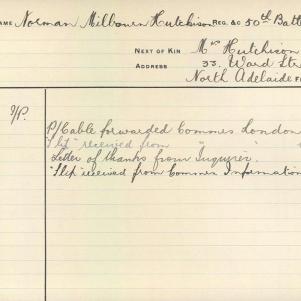 NAME Norman Milbourn Hutchison REG. &C 50th Batt
NEXT OF KIN Mrs Hutchison
ADDRESS 33. Ward Str
North Adelaide
P/Cable forwarded Commrs London
"Slip" received from " "
Letter of thanks from Inquirer.
"Slip" received from Commrs Information